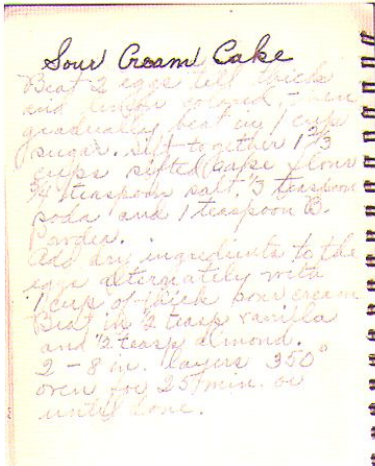 Sour Cream Cake
Beat 2 eggs till thick
and lemon colored, then
gradually beat in 1 cup
sugar. Sift together 1 2/3
cups sifted cake flour
3/4 teaspoon salt, 1/3 teaspoon
soda and 1 teaspoon B.
Powder.
Add dry ingredients to the
eggs alternately with
1 cup of thick sour cream
Beat in 1/2 teasp vanilla
and 1/2 teasp almond.
2 - 8 in. layers 350°
oven for 25 min. or
until done.